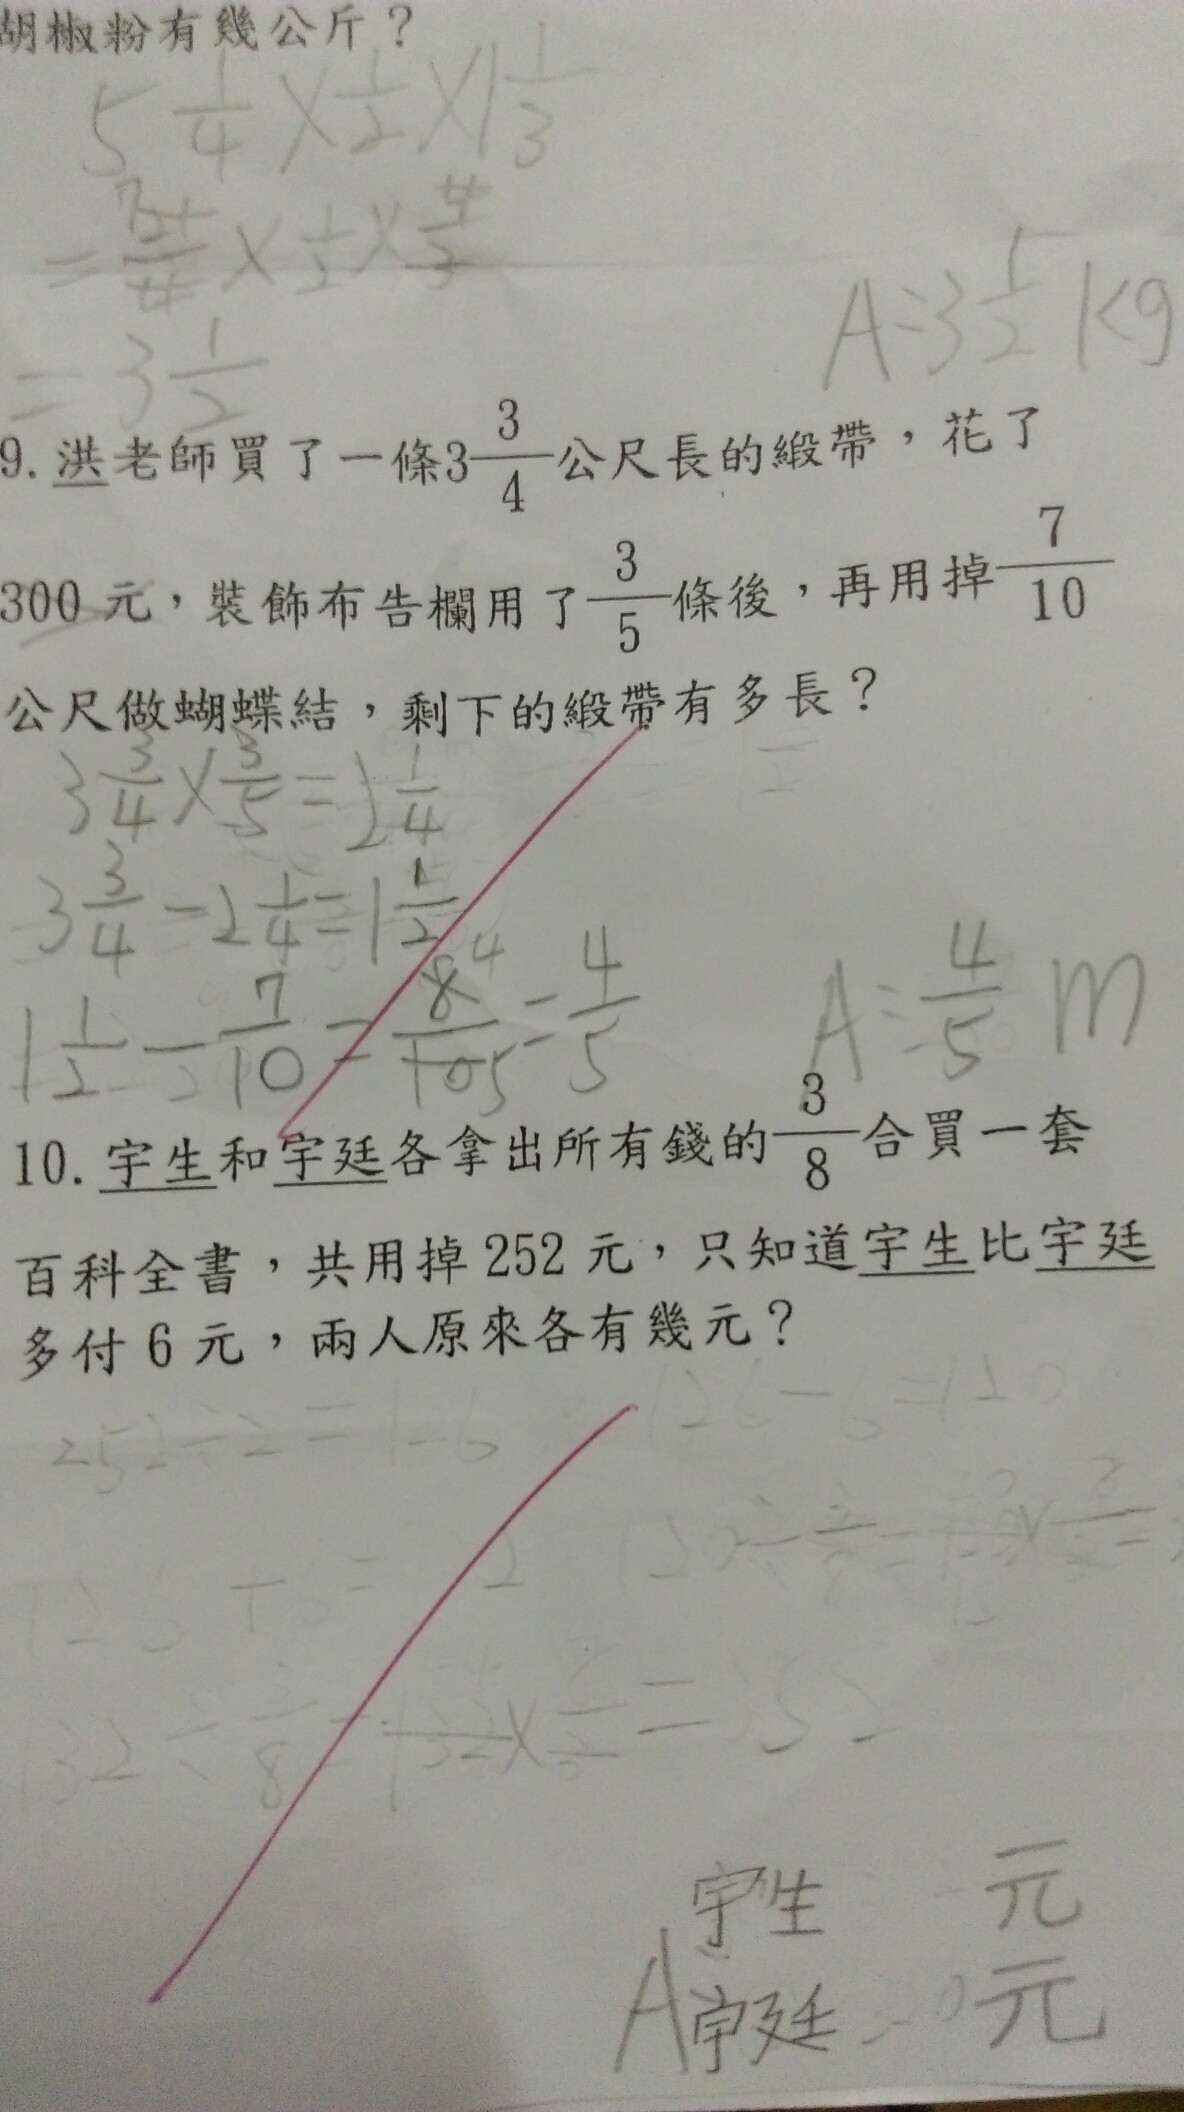 胡椒粉有幾公斤？
5 1/4 × 1/2 × 1 1/3
= 21/4 × 1/2 × 4/3
= 3 1/2
A: 3 1/2 kg
9. 洪老師買了一條3 3/4公尺長的緞帶，花了
300 元，裝飾布告欄用了3/5條後，再用掉7/10
公尺做蝴蝶結，剩下的緞帶有多長？
3 3/4 × 3/5 = 2 1/4
3 3/4 - 2 1/4 = 1 1/2
1 1/2 - 7/10 = 8/10 = 4/5
A: 4/5 m
10. 宇生和宇廷各拿出所有錢的3/8合買一套
百科全書，共用掉 252 元，只知道宇生比宇廷
多付 6 元，兩人原來各有幾元？
252÷2=126
126-6=120
126+6=132
120÷3/8=
132÷3/8=132×8/3=352
宇生 元
A 宇廷 320元